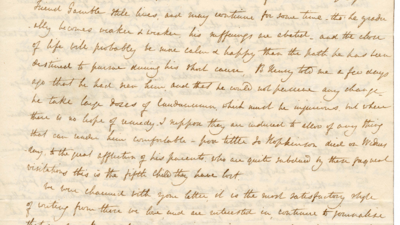 friend Gambler still lives and may continue for some time, tho' he gradu-
ally becomes weaker & weaker his sufferings are abated, and the close
of life will probably be more calm & happy than the path he has been
destined to pursue during his short career. Henry told me a few days
ago that he had seen him and that he could not perceive any change.
he takes large doses of Laudanum, which must be injurious but where
there is no hope of remedy I suppose they are induced to allow of any thing
that can render him comfortable – poor little Jo Hopkinson died on Wednes
day, to the great affliction of his parents, who are quite subdued by these frequent
visitations this is the fifth child they have lost
we were charmed with your letter it is the most satisfactory style
of writing from there we live and are interested in continue to journalise